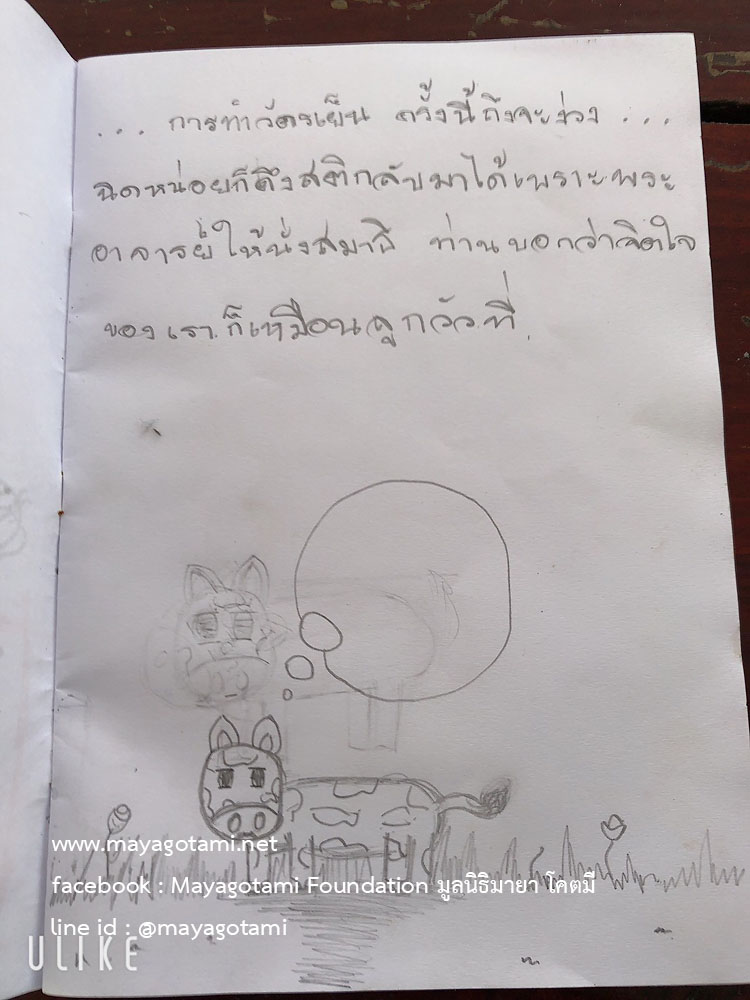 ... การทำวัตรเย็น ครั้งนี้ถึงจะง่วง ...
นิดหน่อยก็ดึงสติกลับมาได้เพราะพระ
อาจารย์ให้นั่งสมาธิ ท่านบอกว่าจิตใจ
ของเราก็เหมือนลูกวัวที่
www.mayagotami.net
facebook : Mayagotami Foundation มูลนิธิมายา โคตมี
line id : @mayagotami
ULIKE